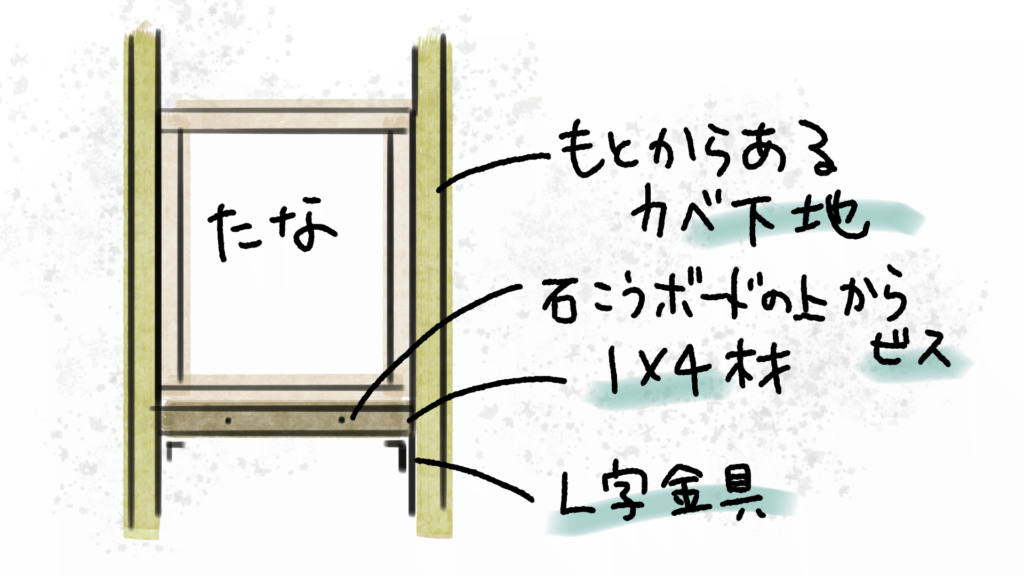 たな
もとからある
カベ下地
石こうボードの上から
ビス
1×4材
L字金具